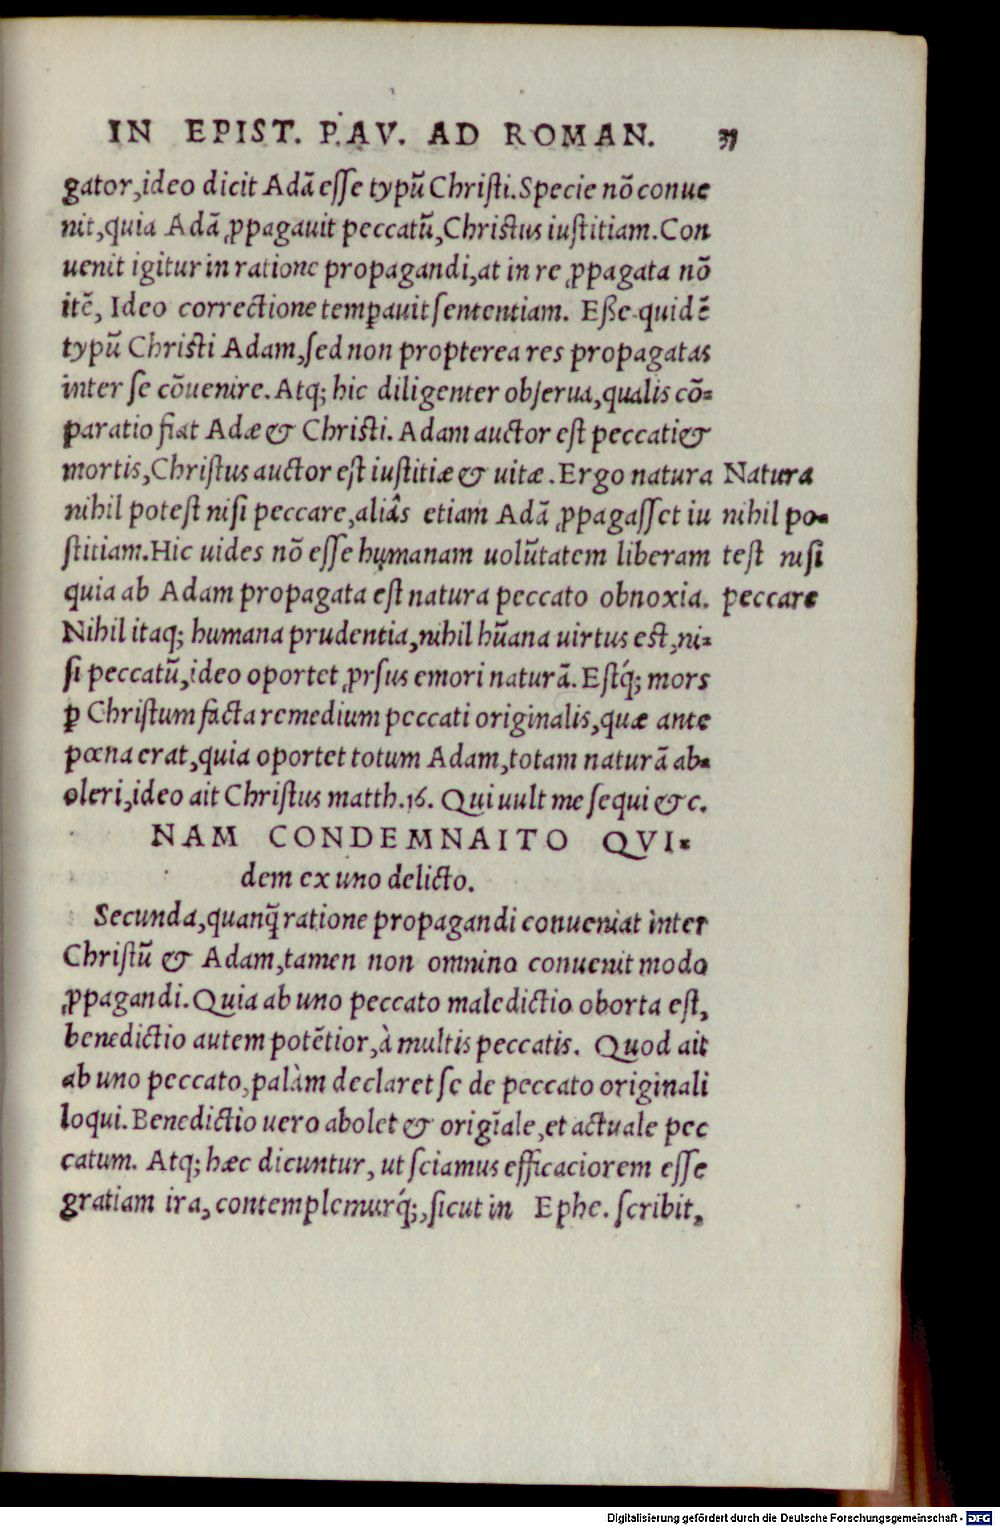 IN EPIST. PAV. AD ROMAN. 37
gator,ideo dicit Adã eſſe typũ Chriſti.Specie nõ conue
nit,quia Adã ꝓpagauit peccatũ,Chriſtus iuſtitiam.Con
uenit igitur in ratione propagandi,at in re ꝓpagata nõ
itẽ, Ideo correctione tempauit ſententiam. Eße quidẽ
typũ Chriſti Adam,ſed non propterea res propagatas
inter ſe cõuenire. Atq; hic diligenter obſerua,qualis cõ=
paratio fiat Adæ & Chriſti. Adam auctor eſt peccati &
mortis,Chriſtus auctor eſt iuſtitiæ & uitæ. Ergo natura
nihil poteſt niſi peccare,aliâs etiam Adã ꝓpagaſſet iu
ſtitiam.Hic uides nõ eſſe humanam uolũtatem liberam
quia ab Adam propagata eſt natura peccato obnoxia.
Natura
nihil po=
teſt niſi
peccare
Nihil itaq; humana prudentia,nihil hũana uirtus eſt,ni=
ſi peccatũ,ideo oportet ꝓrſus emori naturã. Eſtq́; mors
ꝑ Chriſtum facta remedium peccati originalis,quæ ante
pœna erat,quia oportet totum Adam,totam naturã ab=
oleri,ideo ait Chriſtus matth.16. Qui uult me ſequi &c.
NAM CONDEMNAITO QVI=
dem ex uno delicto.
Secunda,quanq̃ ratione propagandi conueniat inter
Chriſtũ & Adam,tamen non omnino conuenit modo
ꝓpagandi. Quia ab uno peccato maledictio oborta eſt,
benedictio autem potẽtior,à multis peccatis. Quod ait
ab uno peccato,palàm declaret ſe de peccato originali
loqui. Benedictio uero abolet & origĩale,et actuale pec
catum. Atq; hæc dicuntur, ut ſciamus efficaciorem eſſe
gratiam ira, contemplemurq́;,ſicut in Ephe. ſcribit,
Digitalisierung gefördert durch die Deutsche Forschungsgemeinschaft - DFG